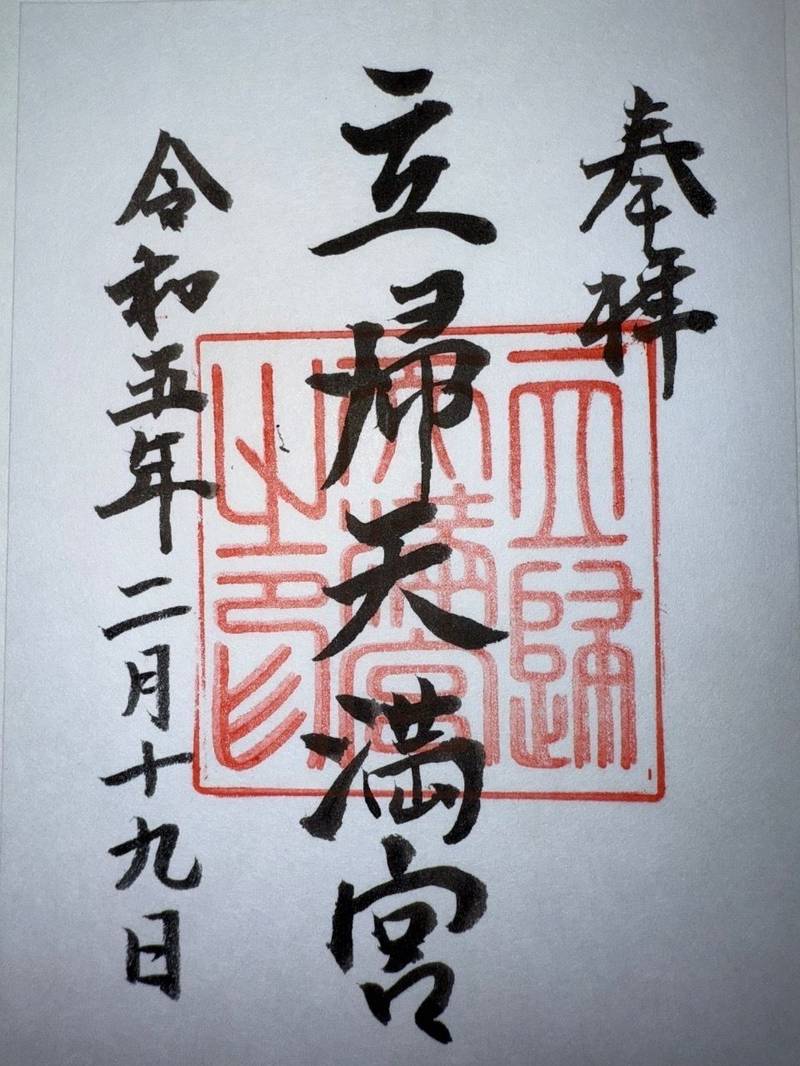 奉拝
立帰天満宮
令和五年二月十九日
立歸
天満宮
之印